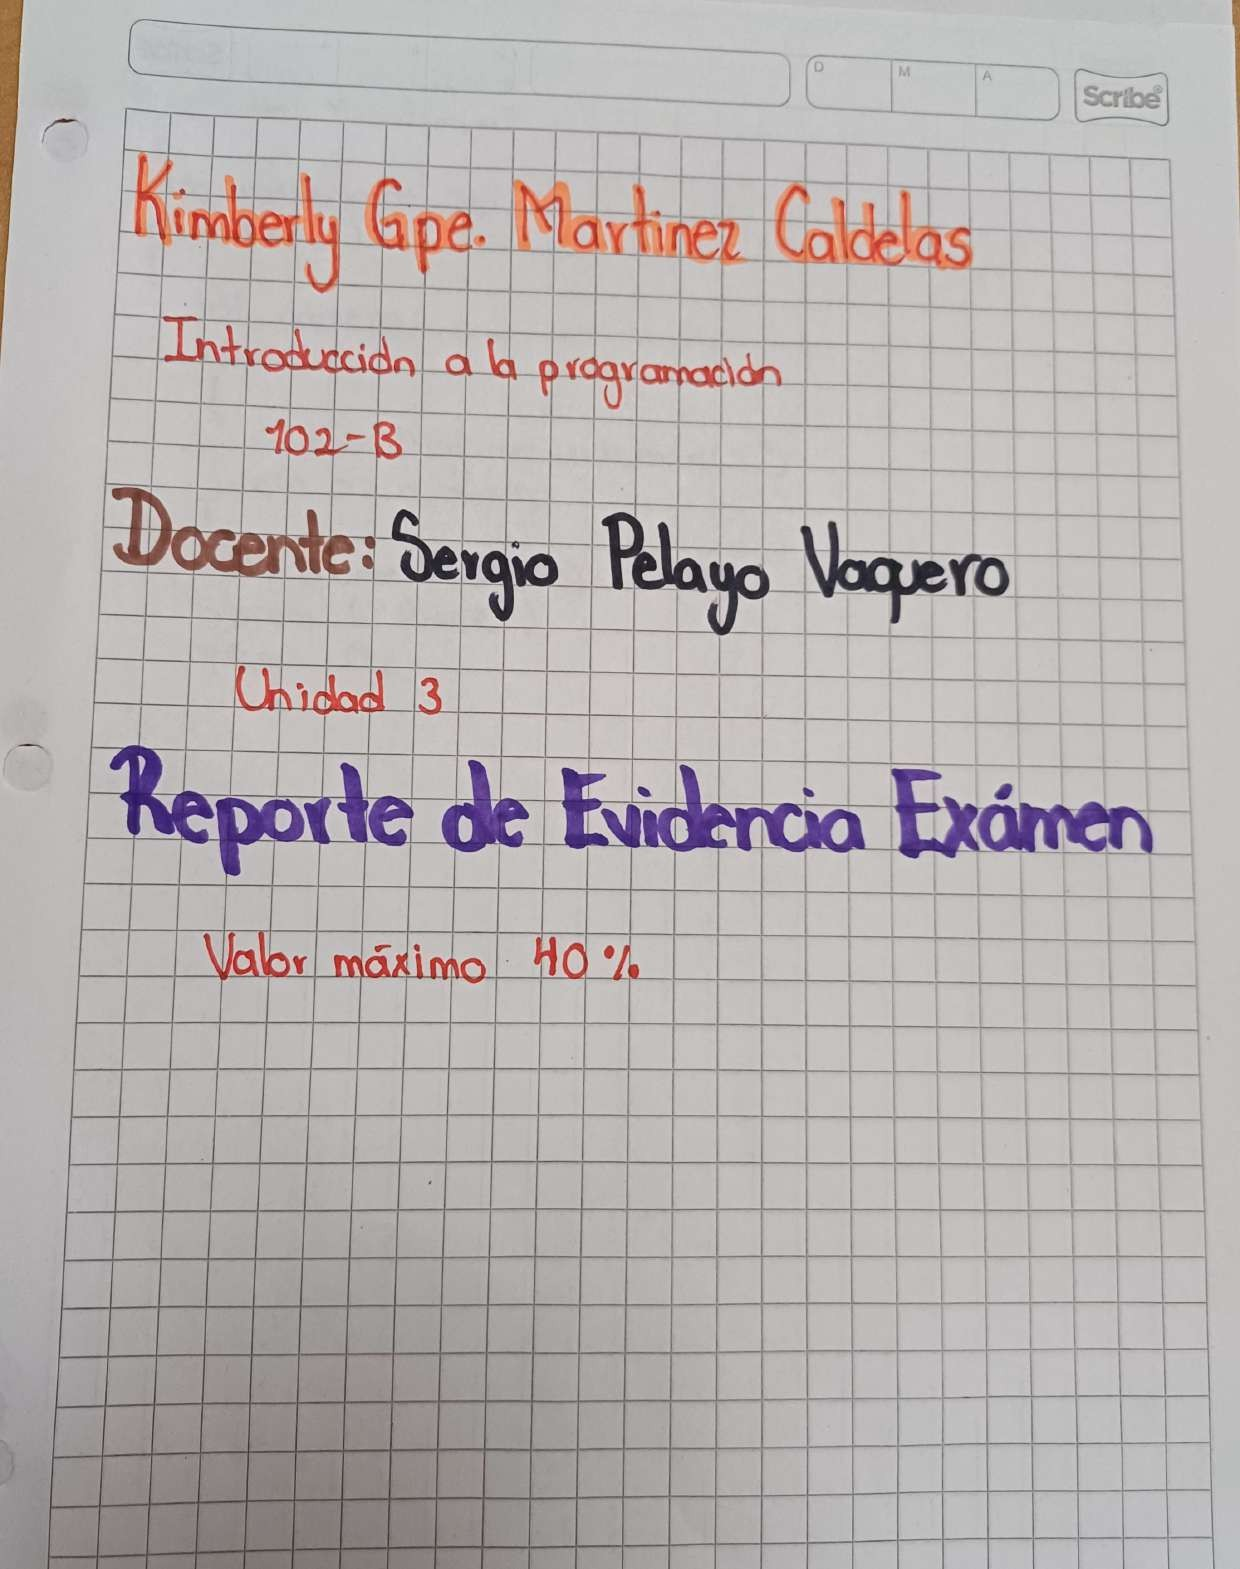 D M A Scribe®
Kimberly Gpe. Martinez Caldelas
Introducción a la programación
102-B
Docente: Sergio Pelayo Vaquero
Unidad 3
Reporte de Evidencia Exámen
Valor máximo 40%